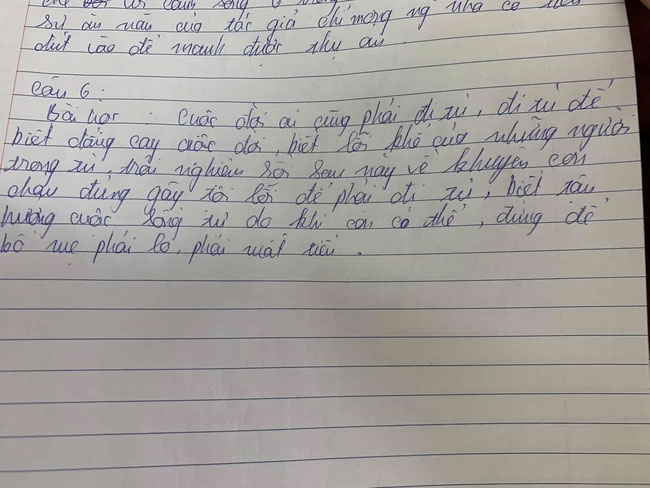 sự ăn năn của tác giả chỉ mong ng nhà có tiền
đút vào để nhanh được thụ án.
Câu 6
Bài học : Cuộc đời ai cũng phải đi tù, đi tù để
biết đắng cay cuộc đời, biết lỗi khổ của những người
trong tù, trải nghiệm rồi sau này về khuyên con
cháu đừng gây tội lỗi để phải đi tù, biết tận
hưởng cuộc sống tự do khi còn có thể, đừng để
bố mẹ phải lo, phải mất tiền.